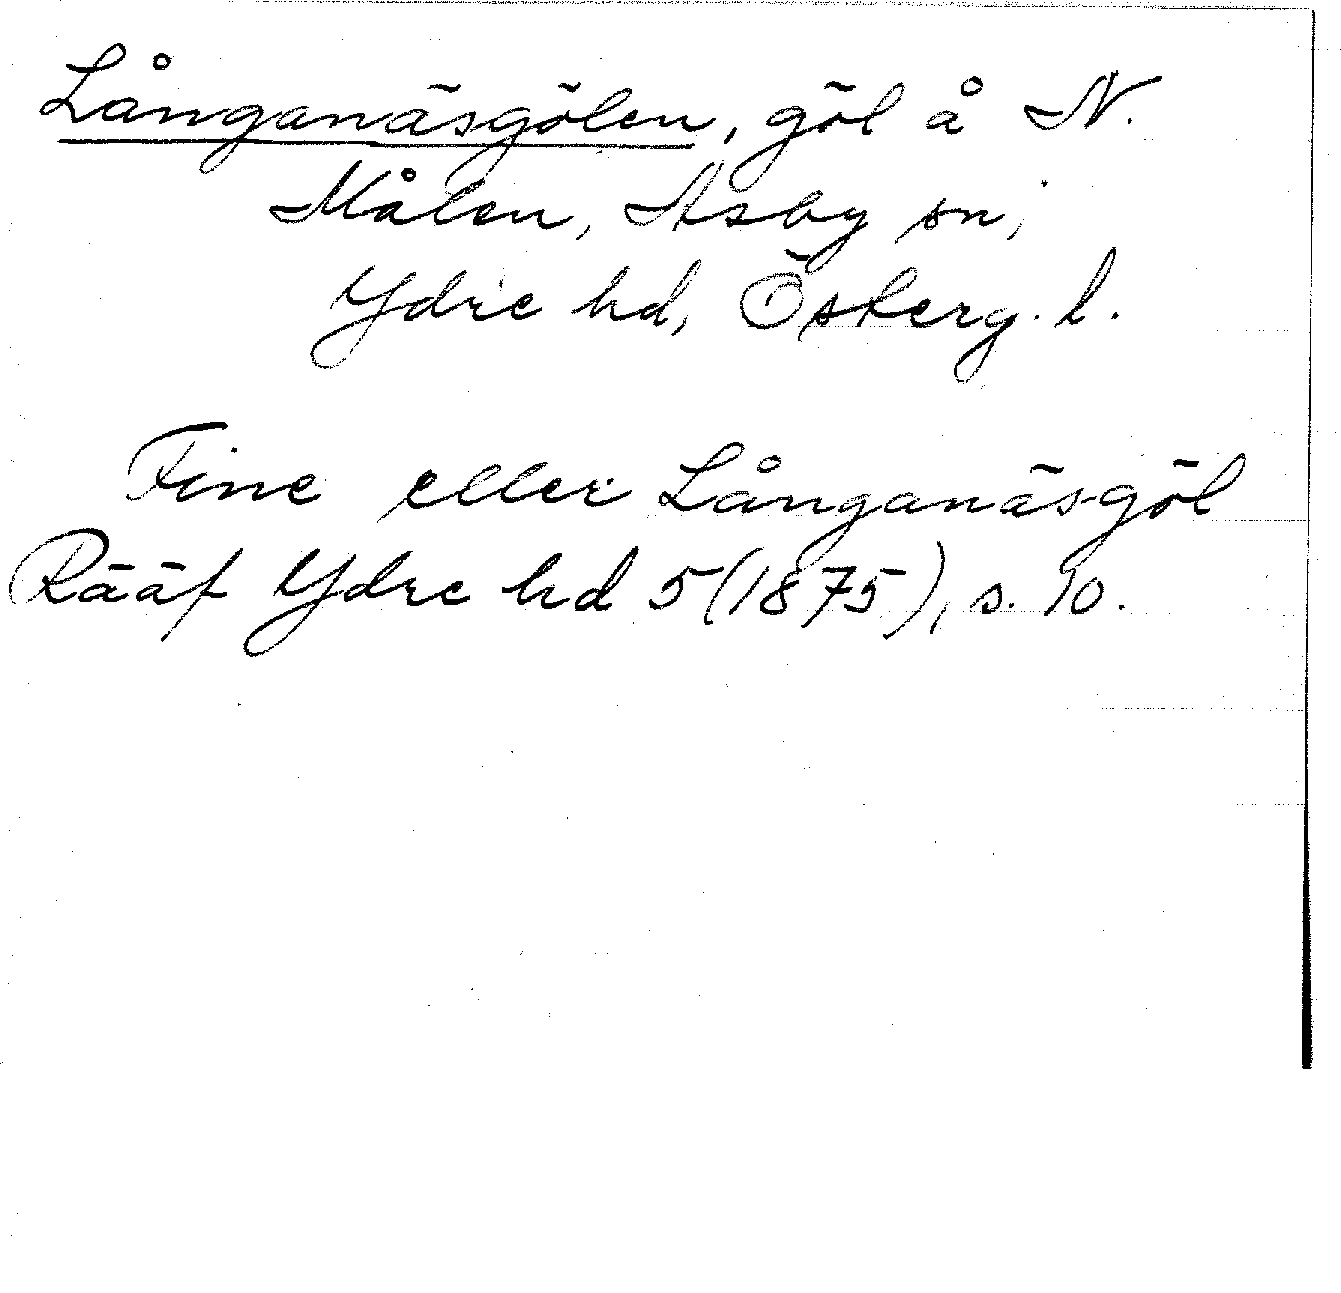 Långanäsgölen, göl å N.
Målen, Asby sn,
Ydre hd, Österg. l.
Fine eller Långanäsgöl
Rääf Ydre hd 5 (1875), s. 10.